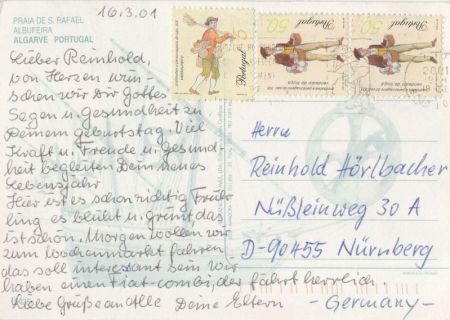 16.3.01
PRAIA DE S. RAFAEL
ALBUFEIRA
ALGARVE PORTUGAL
Lieber Reinhold,
von Herzen wün-
schen wir Dir Gottes
Segen u. Gesundheit zu
Deinem Geburtstag. Viel
Kraft u. Freude u. Gesund-
heit begleiten Dein neues
Lebensjahr
Hier ist es schon richtig Früh-
ling es blüht u. grünt, das
ist schön. Morgen wollen wir
zum Wochenmarkt fahren
das soll interessant sein. Wir
haben einen Fiat-combi, der fährt herrlich
Liebe Grüße an Alle Deine Eltern
Portugal
50 Portugal
50 Portugal
Herrn
Reinhold Hörlbacher
Nüßleinweg 30 A
D-90455 Nürnberg
- Germany -